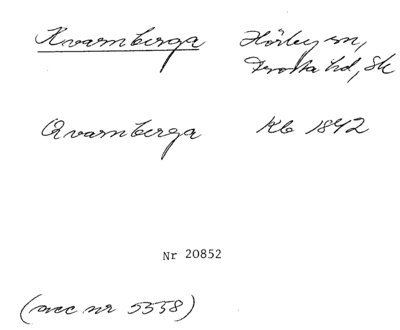 Kvarnberga Hörby sn,
Frosta hd, Sk
Qvarnberga Kb 1842
Nr 20852
(acc nr 5558)